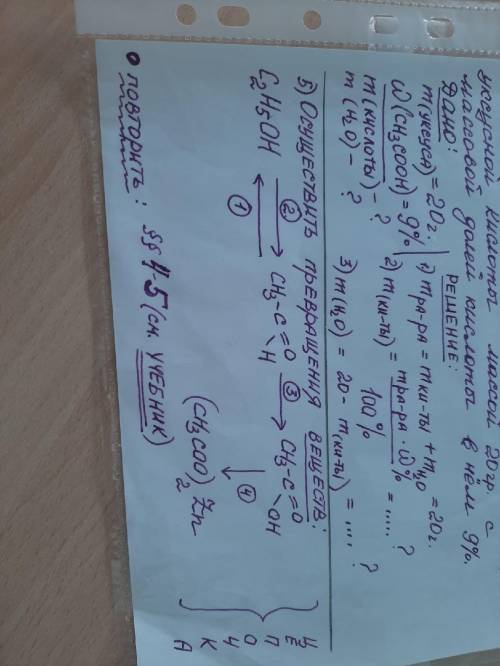 уксусной кислоты массой 20гр. с
массовой долей кислоты в нём 9%.
Дано:
m(уксуса) = 20г.
ω(CH3COOH) = 9%
m(кислоты) - ?
m(H2O) - ?
РЕШЕНИЕ:
1) mр-ра = mки-ты + mH2O = 20г.
2) m(ки-ты) = mр-ра · ω% / 100% = ..... ?
3) m(H2O) = 20 - m(ки-ты) = .... ?
5) ОСУЩЕСТВИТЬ ПРЕВРАЩЕНИЯ ВЕЩЕСТВ:
C2H5OH ② → ← ① CH3-C=O \ H ③ → CH3-C=O \ OH
↓ ④
(CH3COO)2Zn
ЦЕПОЧКА
• ПОВТОРИТЬ: §§ 4-5 (см. УЧЕБНИК)